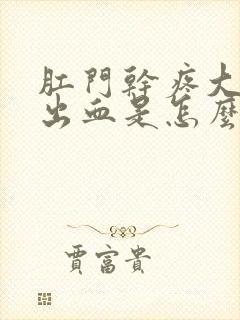 肛門幹疼大
出血是怎麼
賈富貴